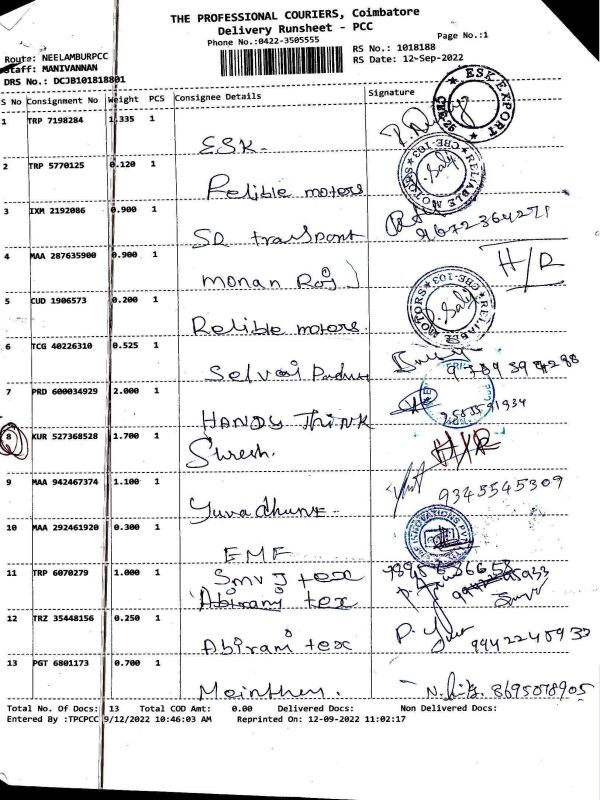 THE PROFESSIONAL COURIERS, Coimbatore
Delivery Runsheet - PCC
Phone No.:0422-3505555
Page No.:1
Route: NEELAMBURPCC
RS No.: 1018188
Staff: MANIVANNAN
RS Date: 12-Sep-2022
DRS No.: DCJB101818801
S No Consignment No Weight PCS Consignee Details Signature
1 TRP 7198284 1.335 1
ESK-
ESK EXPORT
2 TRP 5770125 0.120 1
Relible motors
RELIABLE MOTORS CBE-103
3 IXM 2192086 0.900 1
SR transport
9672364271
4 MAA 287635900 0.900 1
monan Raj
H/R
5 CUD 1906573 0.200 1
Relible motors.
RELIABLE MOTORS CBE-103
6 TCG 40226310 0.525 1
Selvai
7 PRD 600034929 2.000 1
HANDY THINK
8 KUR 527368528 1.700 1
Suresh.
H/R
9 MAA 942467374 1.100 1
9345545309
10 MAA 292461920 0.300 1
EMF
11 TRP 6070279 1.000 1
Smvj tex
Abirami tex
12 TRZ 35448156 0.250 1
Abirami tex
9442245933
13 PGT 6801173 0.700 1
8695078905
Total No. Of Docs: 13 Total COD Amt: 0.00 Delivered Docs: Non Delivered Docs:
Entered By :TPCPCC 9/12/2022 10:46:03 AM Reprinted On: 12-09-2022 11:02:17